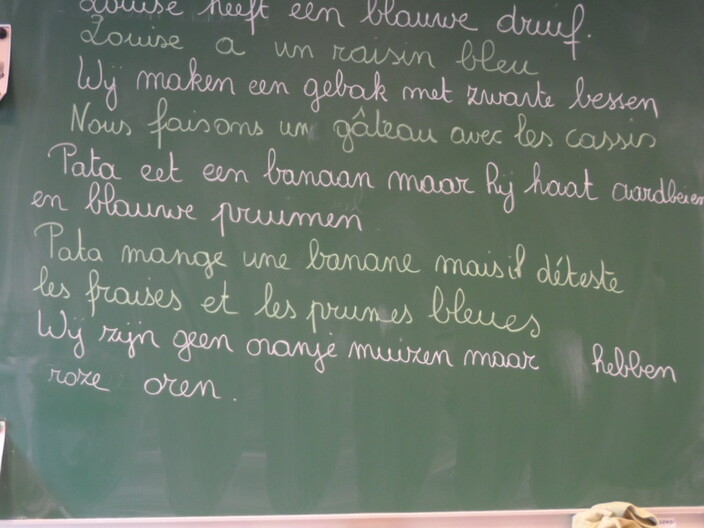 Louise heeft een blauwe druif.
Louise a un raisin bleu
Wij maken een gebak met zwarte bessen
Nous faisons un gâteau avec les cassis
Pata eet een banaan maar hij haat aardbeien
en blauwe pruimen
Pata mange une banane mais il déteste
les fraises et les prunes bleues
Wij zijn geen oranje muizen maar hebben
roze oren.